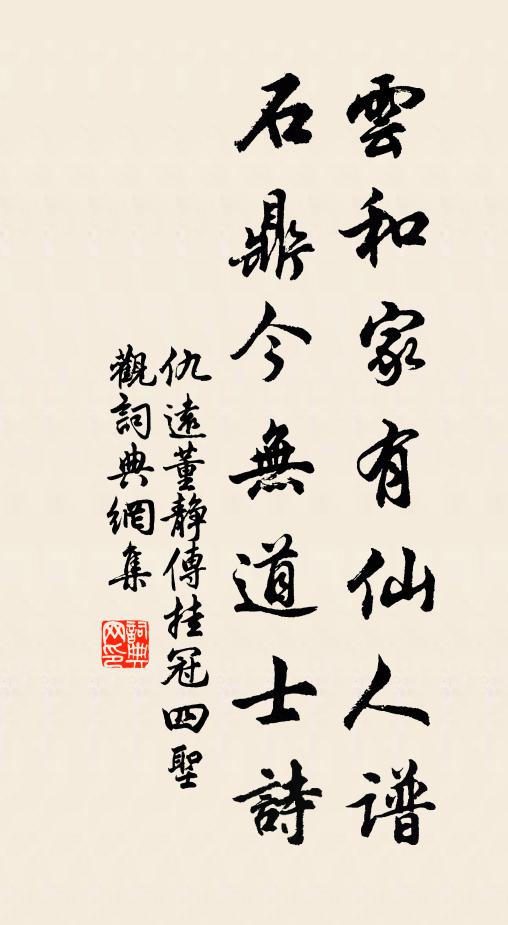 雲和家有仙人谱
石鼎今無道士詩
仇遠董静傳挂冠四聖
觀詞典網集
詞典网印